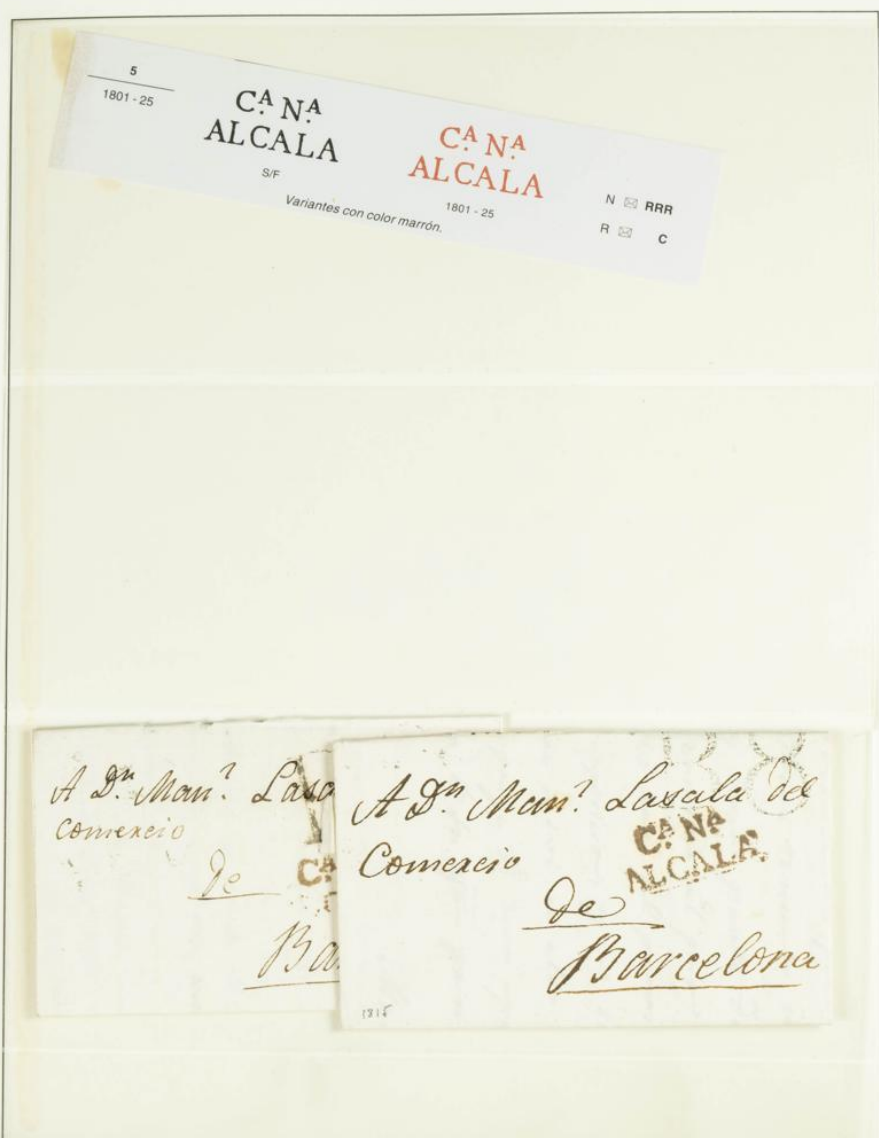 5
1801 - 25
Cª. Nª.
ALCALA
S/F
Cª. Nª.
ALCALA
1801 - 25
Variantes con color marrón.
N RRR
R C
A Dⁿ. Man.ˡ
Comercio
de
Cª
A Dⁿ Man.ˡ Lasala del
Comercio
de
Barcelona
Cª Nª
ALCALA.
38
1815